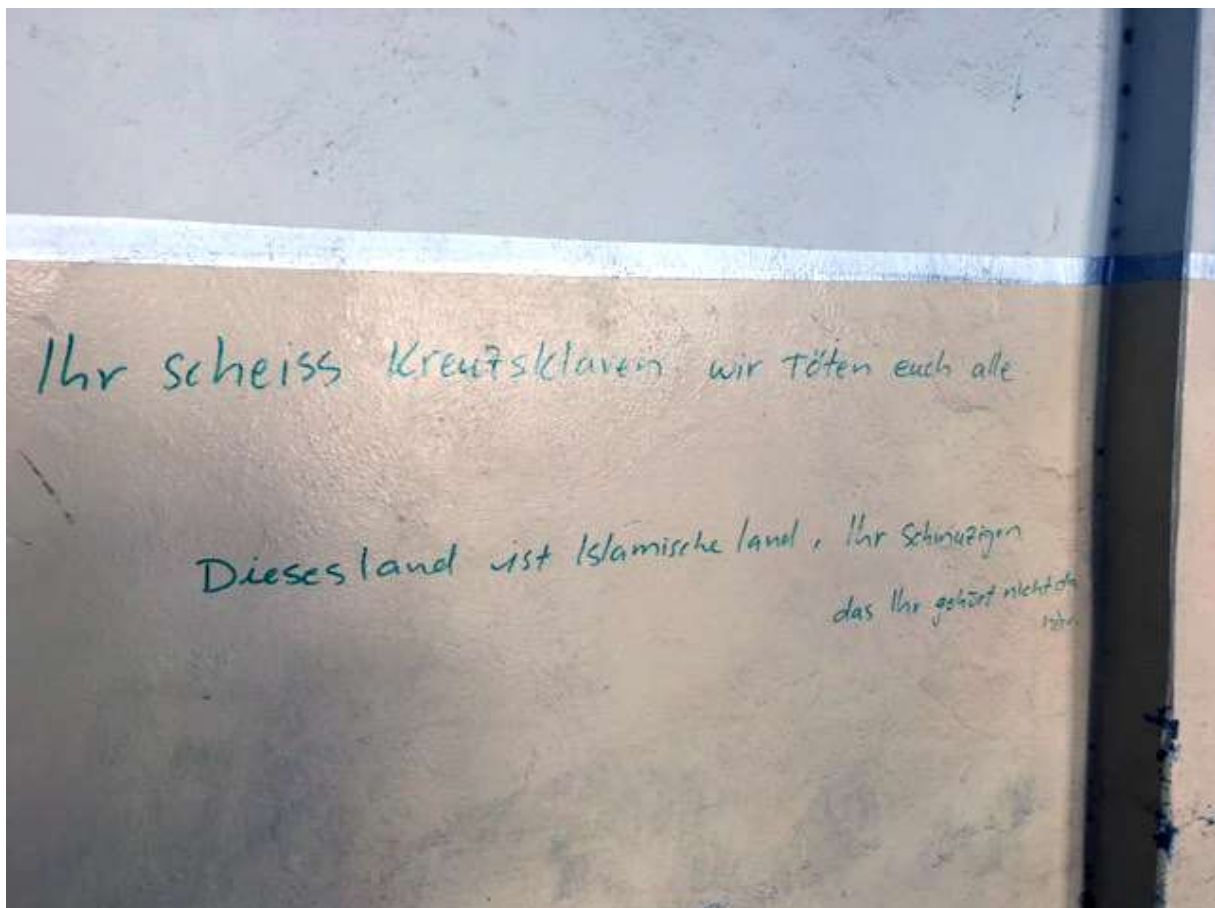 Ihr scheiss Kreuzsklaven wir Töten euch alle
Dieses land ist Islamische land, Ihr Schmuzigen
das Ihr gehört nicht